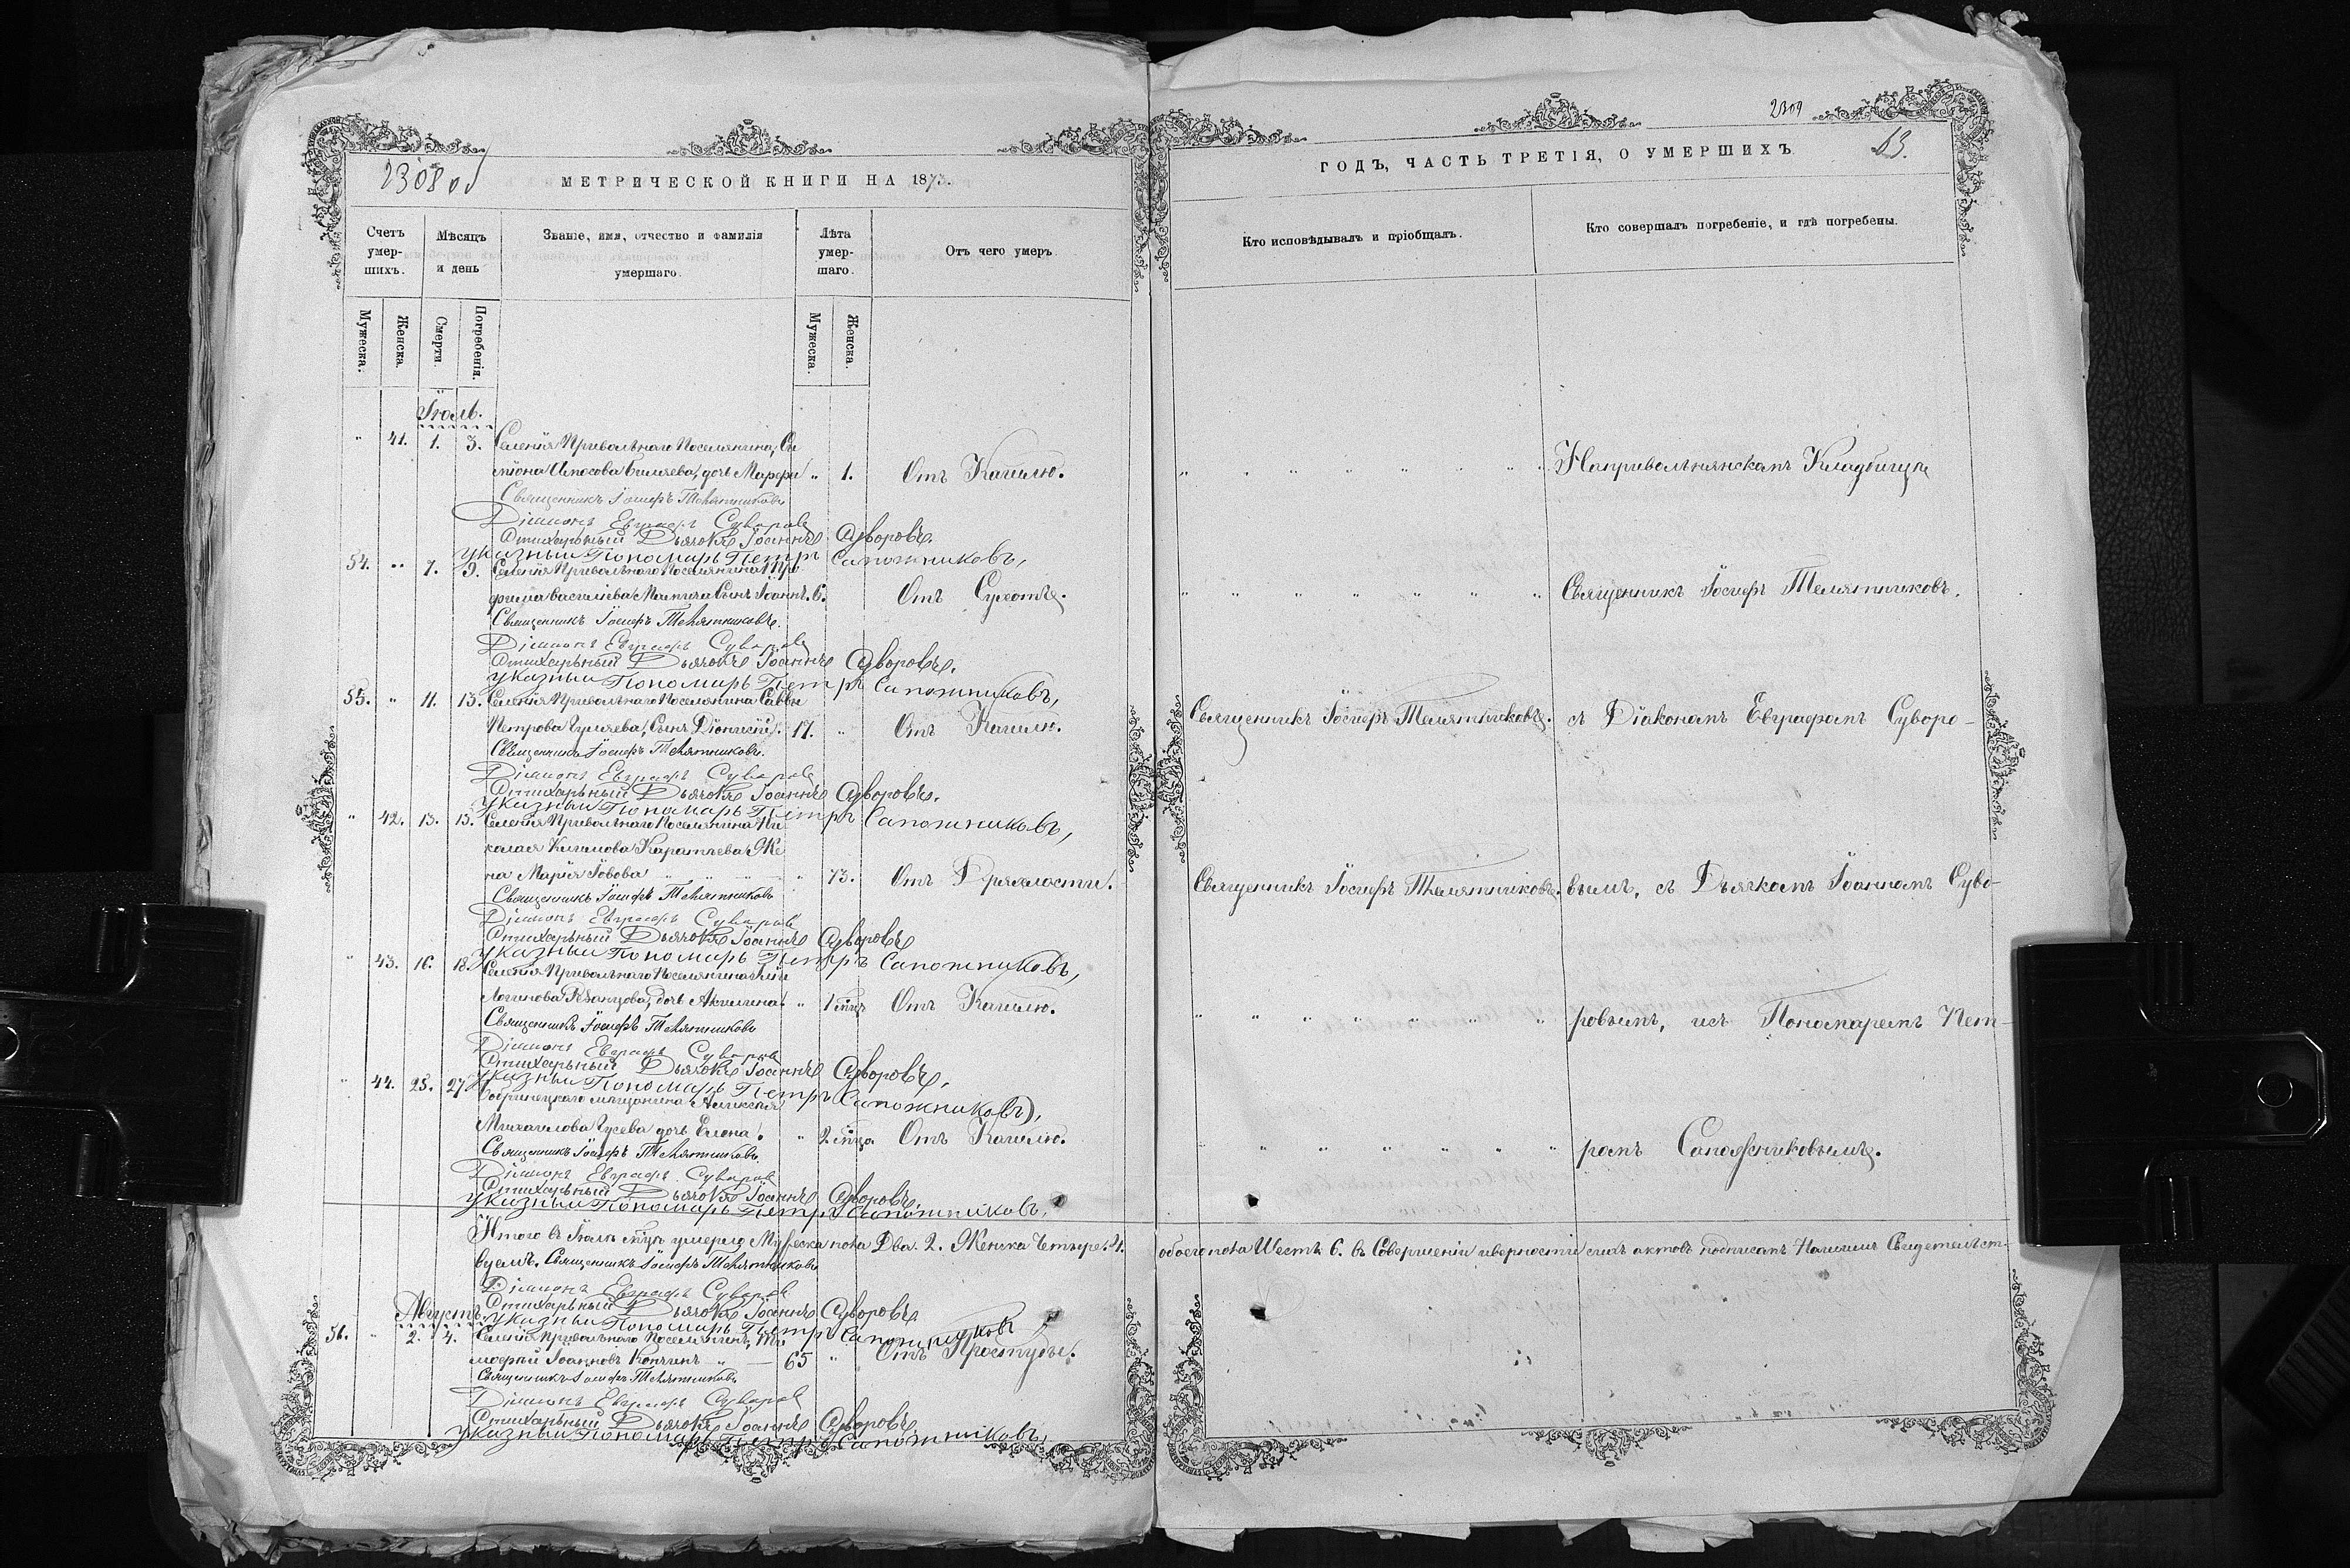 2308 об
МЕТРИЧЕСКОЙ КНИГИ НА 1873.
Счетъ умер-шихъ.
Мѣсяцъ и день
Званіе, имя, отчество и фамилія умершаго.
Лѣта умер-шаго.
Отъ чего умеръ.
Мужеска.
Женска.
Смерти.
Погребенія.
Мужеска.
Женска.
Іюль.
" 41. 1. 3. Селенія Привольнаго Поселянина, Си
мiона Беляева, дочь Марфа " 1. Отъ Кашлю.
Священникъ Іосифъ Телятниковъ
Діаконъ Евграфъ Суворовъ
Стихарный Дьячокъ Іоаннъ Суворовъ.
Указный Пономарь Петръ Сапожниковъ,
54. " 7. 9. Селенія Привольнаго Поселянина Тро
фима Васильева сынъ Іоаннъ. 6. Отъ Сухоты.
Священникъ Іосифъ Телятниковъ.
Діаконъ Евграфъ Суворовъ
Стихарный Дьячокъ Іоаннъ Суворовъ.
Указный Пономарь Петръ Сапожниковъ,
55. " 11. 13. Селенія Привольнаго Поселянина Саввы
Петрова Гуляева, Сынъ Діонисій. 17. " Отъ Кашлю.
Священникъ Іосифъ Телятниковъ.
Діаконъ Евграфъ Суворовъ
Стихарный Дьячокъ Іоаннъ Суворовъ.
Указный Пономарь Петръ Сапожниковъ,
" 42. 13. 15. Селенія Привольнаго Поселянина Ни
колая Каратѣева Же
на Марія Іовова " 73. Отъ Дряхлости.
Священникъ Іосифъ Телятниковъ
Діаконъ Евграфъ Суворовъ
Стихарный Дьячокъ Іоаннъ Суворовъ
Указный Пономарь Петръ Сапожниковъ,
" 43. 16. 18. Селенія Привольнаго Поселянина
Логинова дочь Акилина. " 1 мѣц Отъ Кашлю.
Священникъ Іосифъ Телятниковъ
Діаконъ Евграфъ Суворовъ
Стихарный Дьячокъ Іоаннъ Суворовъ,
Указный Пономарь Петръ Сапожниковъ,
" 44. 25. 27. Бобринецкаго мѣщанина Алексѣя
Михаилова Гусева дочь Елена. " 2 мѣца Отъ Кашлю.
Священникъ Іосифъ Телятниковъ
Діаконъ Евграфъ Суворовъ
Стихарный Дьячокъ Іоаннъ Суворовъ,
Указный Пономарь Петръ Сапожниковъ,
Итого въ Іюль мѣцъ умерло Мужеска пола Два. 2. Женска Четыре. 4.
вуемъ. Священникъ Іосифъ Телятниковъ
Діаконъ Евграфъ Суворовъ
Стихарный Дьячокъ Іоаннъ Суворовъ
Указный Пономарь Петръ Сапожниковъ
Августъ.
56. " 2. 4. Селенія Привольнаго Поселянинъ, Ти
мофей Іоанновъ 65 " Отъ Простуды.
Священникъ Іосифъ Телятниковъ
Діаконъ Евграфъ Суворовъ
Стихарный Дьячокъ Іоаннъ Суворовъ
Указный Пономарь Петръ Сапожниковъ,
2309
63.
ГОДЪ, ЧАСТЬ ТРЕТІЯ, О УМЕРШИХЪ.
Кто исповѣдывалъ и пріобщалъ.
Кто совершалъ погребеніе, и гдѣ погребены.
На Кладбищѣ
Священникъ Іосифъ Телятниковъ.
Священникъ Іосифъ Телятниковъ. съ Діаконамъ Евграфамъ Суворо-
Священникъ Іосифъ Телятниковъ. вымъ, съ Дьячкамъ Іоаннамъ Суво-
ровымъ, исъ Пономаремъ Пет-
рамъ Сапожниковымъ.
обоего пола Шесть 6. въ Совершеніи иверности сихъ актовъ подписамъ Нашимъ Свидетельст-